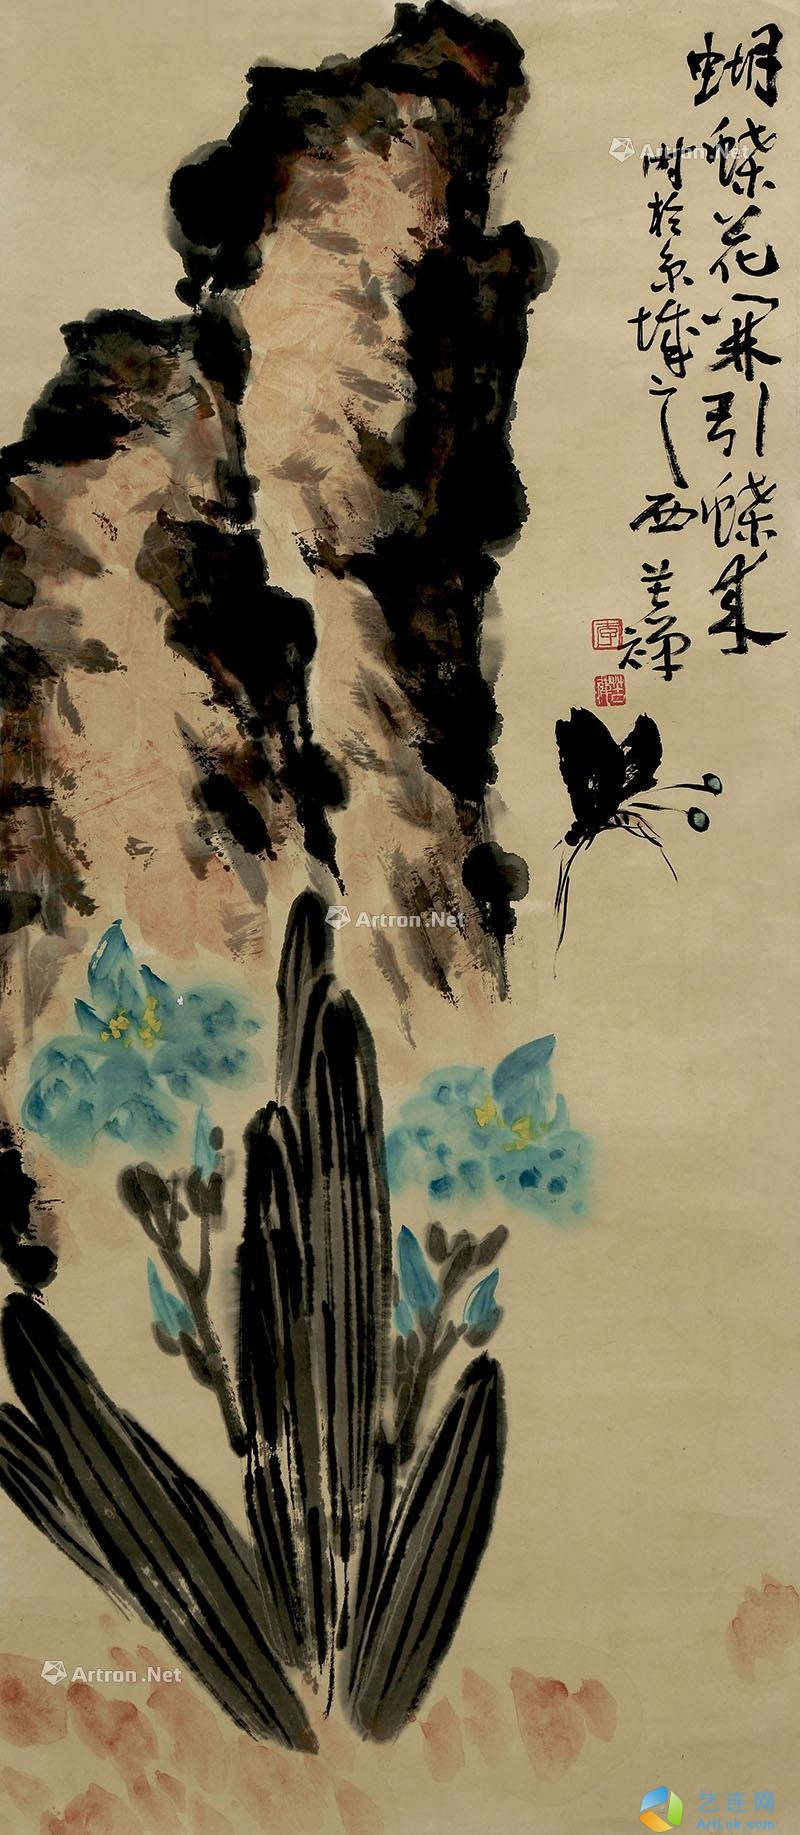 蝴蝶花開引蝶來
時於京城之西 苦禪
李
苦禪
Artron.Net
Artron.Net
Artron.Net
艺连网
ArtLnk.com